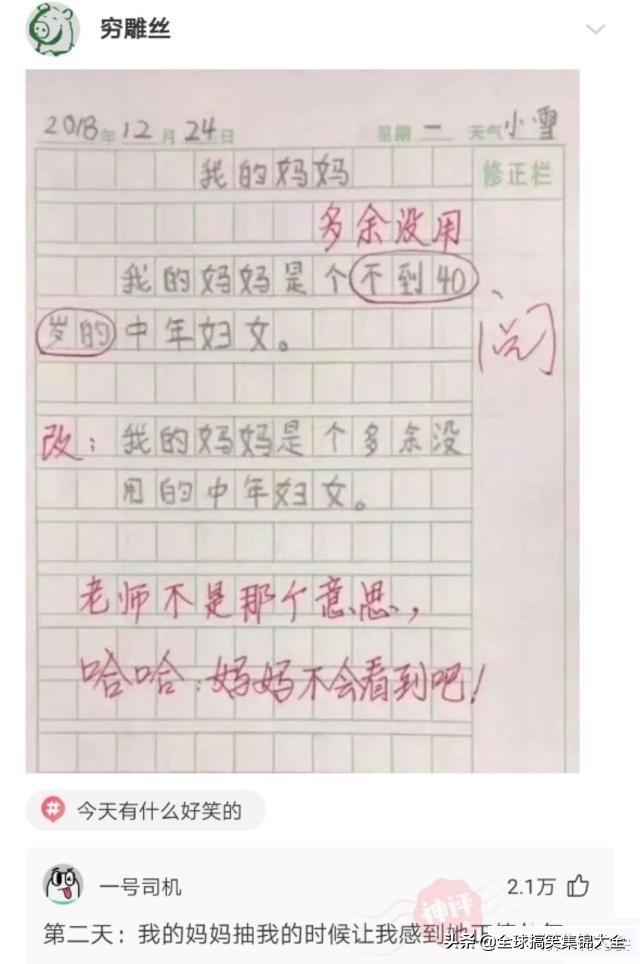 穷雕丝
2018年12月24日 星期一 天气小雪
我的妈妈 修正栏
多余没用
我的妈妈是个不到40
岁的中年妇女。
阅
改：我的妈妈是个多余没
用的中年妇女。
老师不是那个意思，
哈哈：妈妈不会看到吧！
今天有什么好笑的
一号司机 2.1万
神评
第二天：我的妈妈抽我的时候让我感到她正值
头条@全球搞笑集锦大全